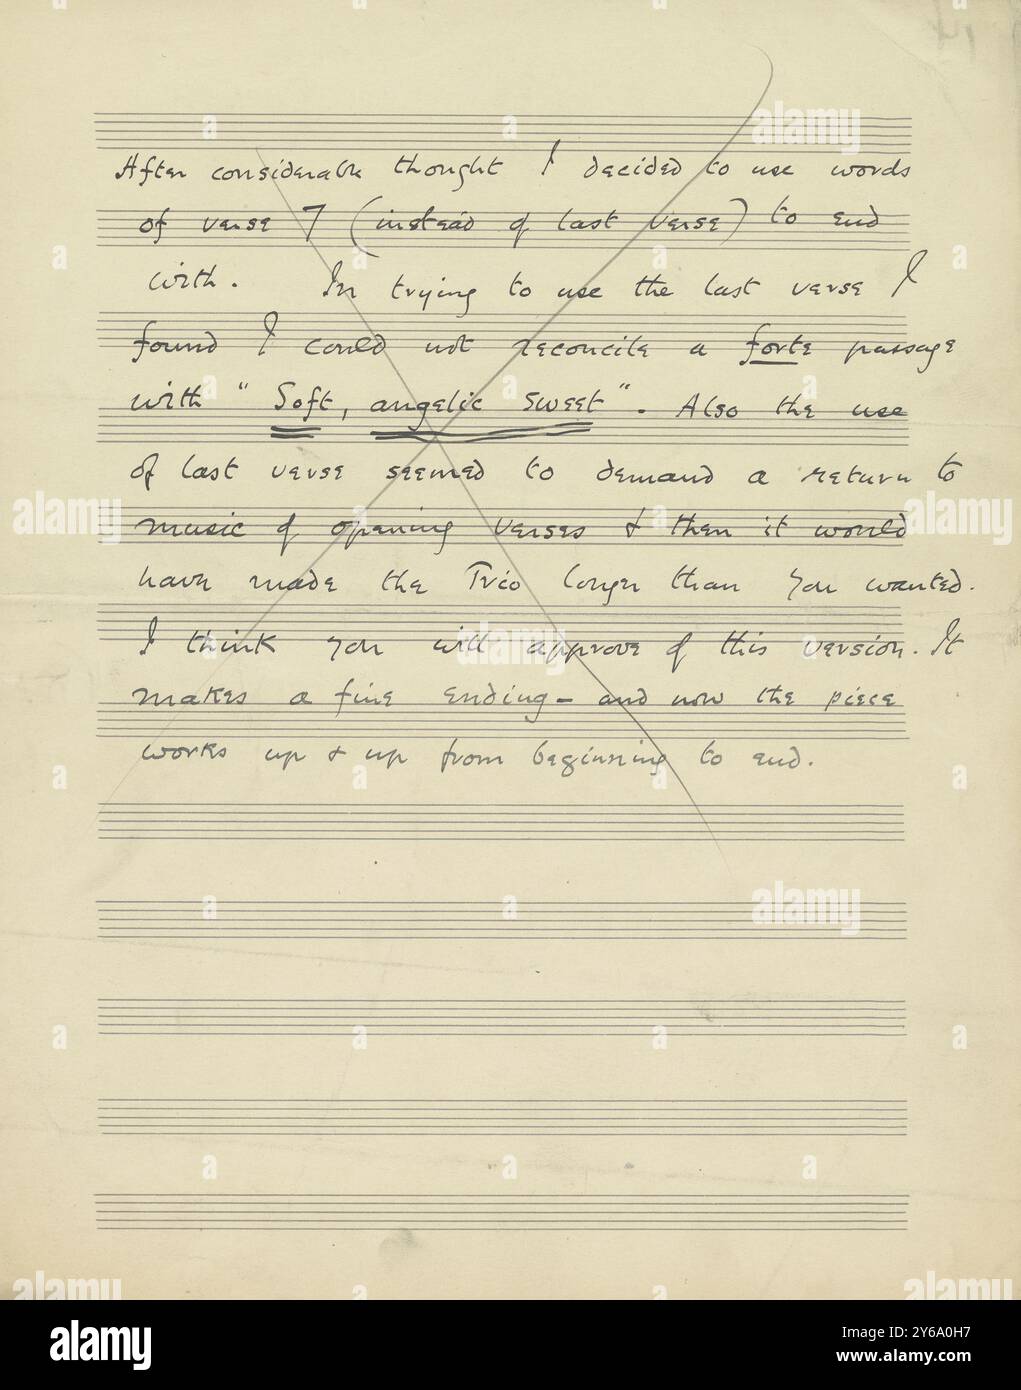 After considerable thought I decided to use words
of verse 7 (instead of last verse) to end
with. In trying to use the last verse I
found I could not reconcile a forte passage
with "Soft, angelic sweet". Also the use
of last verse seemed to demand a return to
music of opening verses & then it would
have made the Trio longer than you wanted.
I think you will approve of this version. It
makes a fine ending - and now the piece
works up & up from beginning to end.
alamy
Image ID: 2Y6A0H7
www.alamy.com